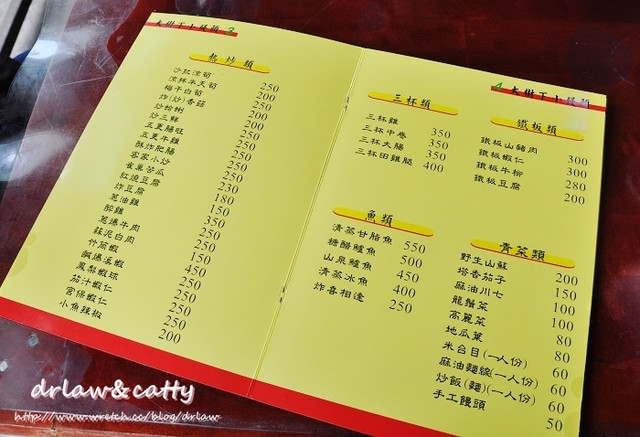 大樹下小餐館 3
熱炒類
沙拉涼筍 250
涼拌半天筍 200
梅干白筍 250
炸(炒)香菇 200
炒螃蜊 200
炒三鮮 250
五更腸旺 200
五更牛雞 250
酥炸肥腸 250
客家小炒 250
雀巢苦瓜 250
紅燒豆腐 230
炸豆腐 180
蔥油雞 150
醉雞 350
蔥爆牛肉 250
蒜泥白肉 250
竹筒蝦 150
鹹爆溪蝦 450
鳳梨蝦球 250
茄汁蝦仁 250
宮保蝦仁 250
小魚辣椒 200
4 大樹下小餐館
三杯類
三杯雞 350
三杯中卷 350
三杯大腸 350
三杯田雞腿 400
鐵板類
鐵板山豬肉 300
鐵板蝦仁 300
鐵板牛柳 280
鐵板豆腐 200
魚類
清蒸甘脂魚 550
糖醋鱸魚 500
山泉鱸魚 450
清蒸冰魚 400
炸喜相逢 250
青菜類
野生山蘇 200
塔香茄子 150
麻油川七 100
龍鬚菜 100
高麗菜 100
地瓜葉 80
米苔目(一人份) 80
麻油麵線(一人份) 60
炒飯(麵)(一人份) 60
手工饅頭 60
50
drlaw&catty
http://www.wretch.cc/blog/drlaw